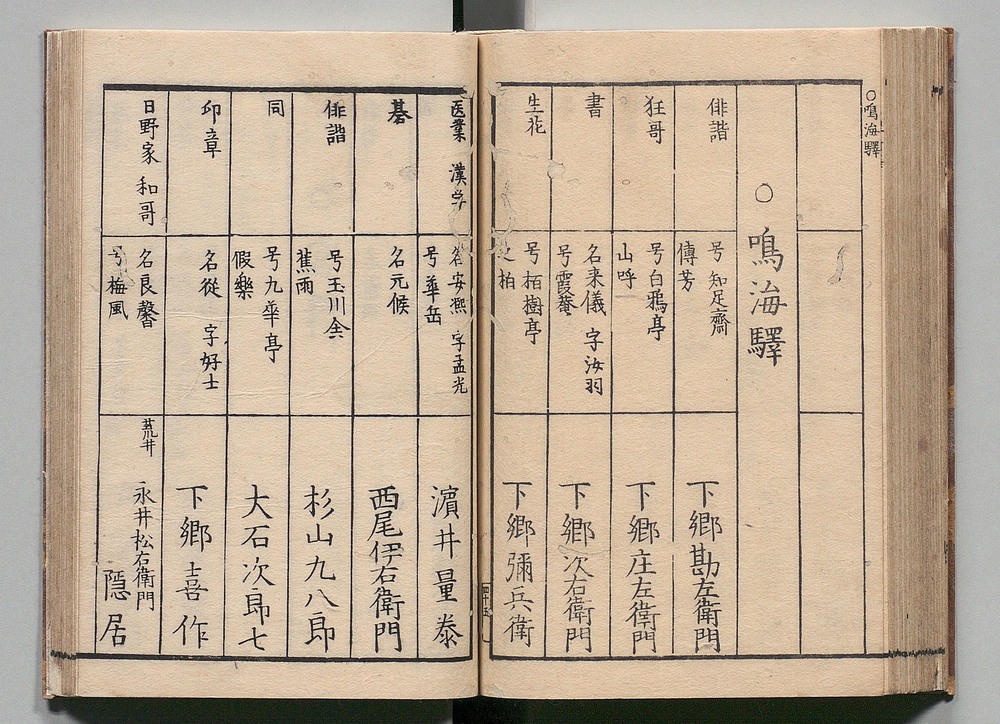 ○鳴海驛
○鳴海驛
俳諧
号 知足齋
傳芳
下郷勘左衛門
狂哥
号白鴉亭
山呼
下郷庄左衛門
書
名来儀 字汝羽
号霞菴
下郷次右衛門
生花
号栢樹亭
之柏
下郷彌兵衛
四十五
医業 漢学
名安熙 字孟光
号華岳
濵井量泰
碁
名元候
西尾伊右衛門
俳諧
号玉川舎
蕉雨
杉山九八郎
同
号九華亭
假樂
大石次郎七
印章
名從 字好士
下郷喜作
日野家 和哥
名良馨
号梅風
荒井
永井松右衛門
隠居